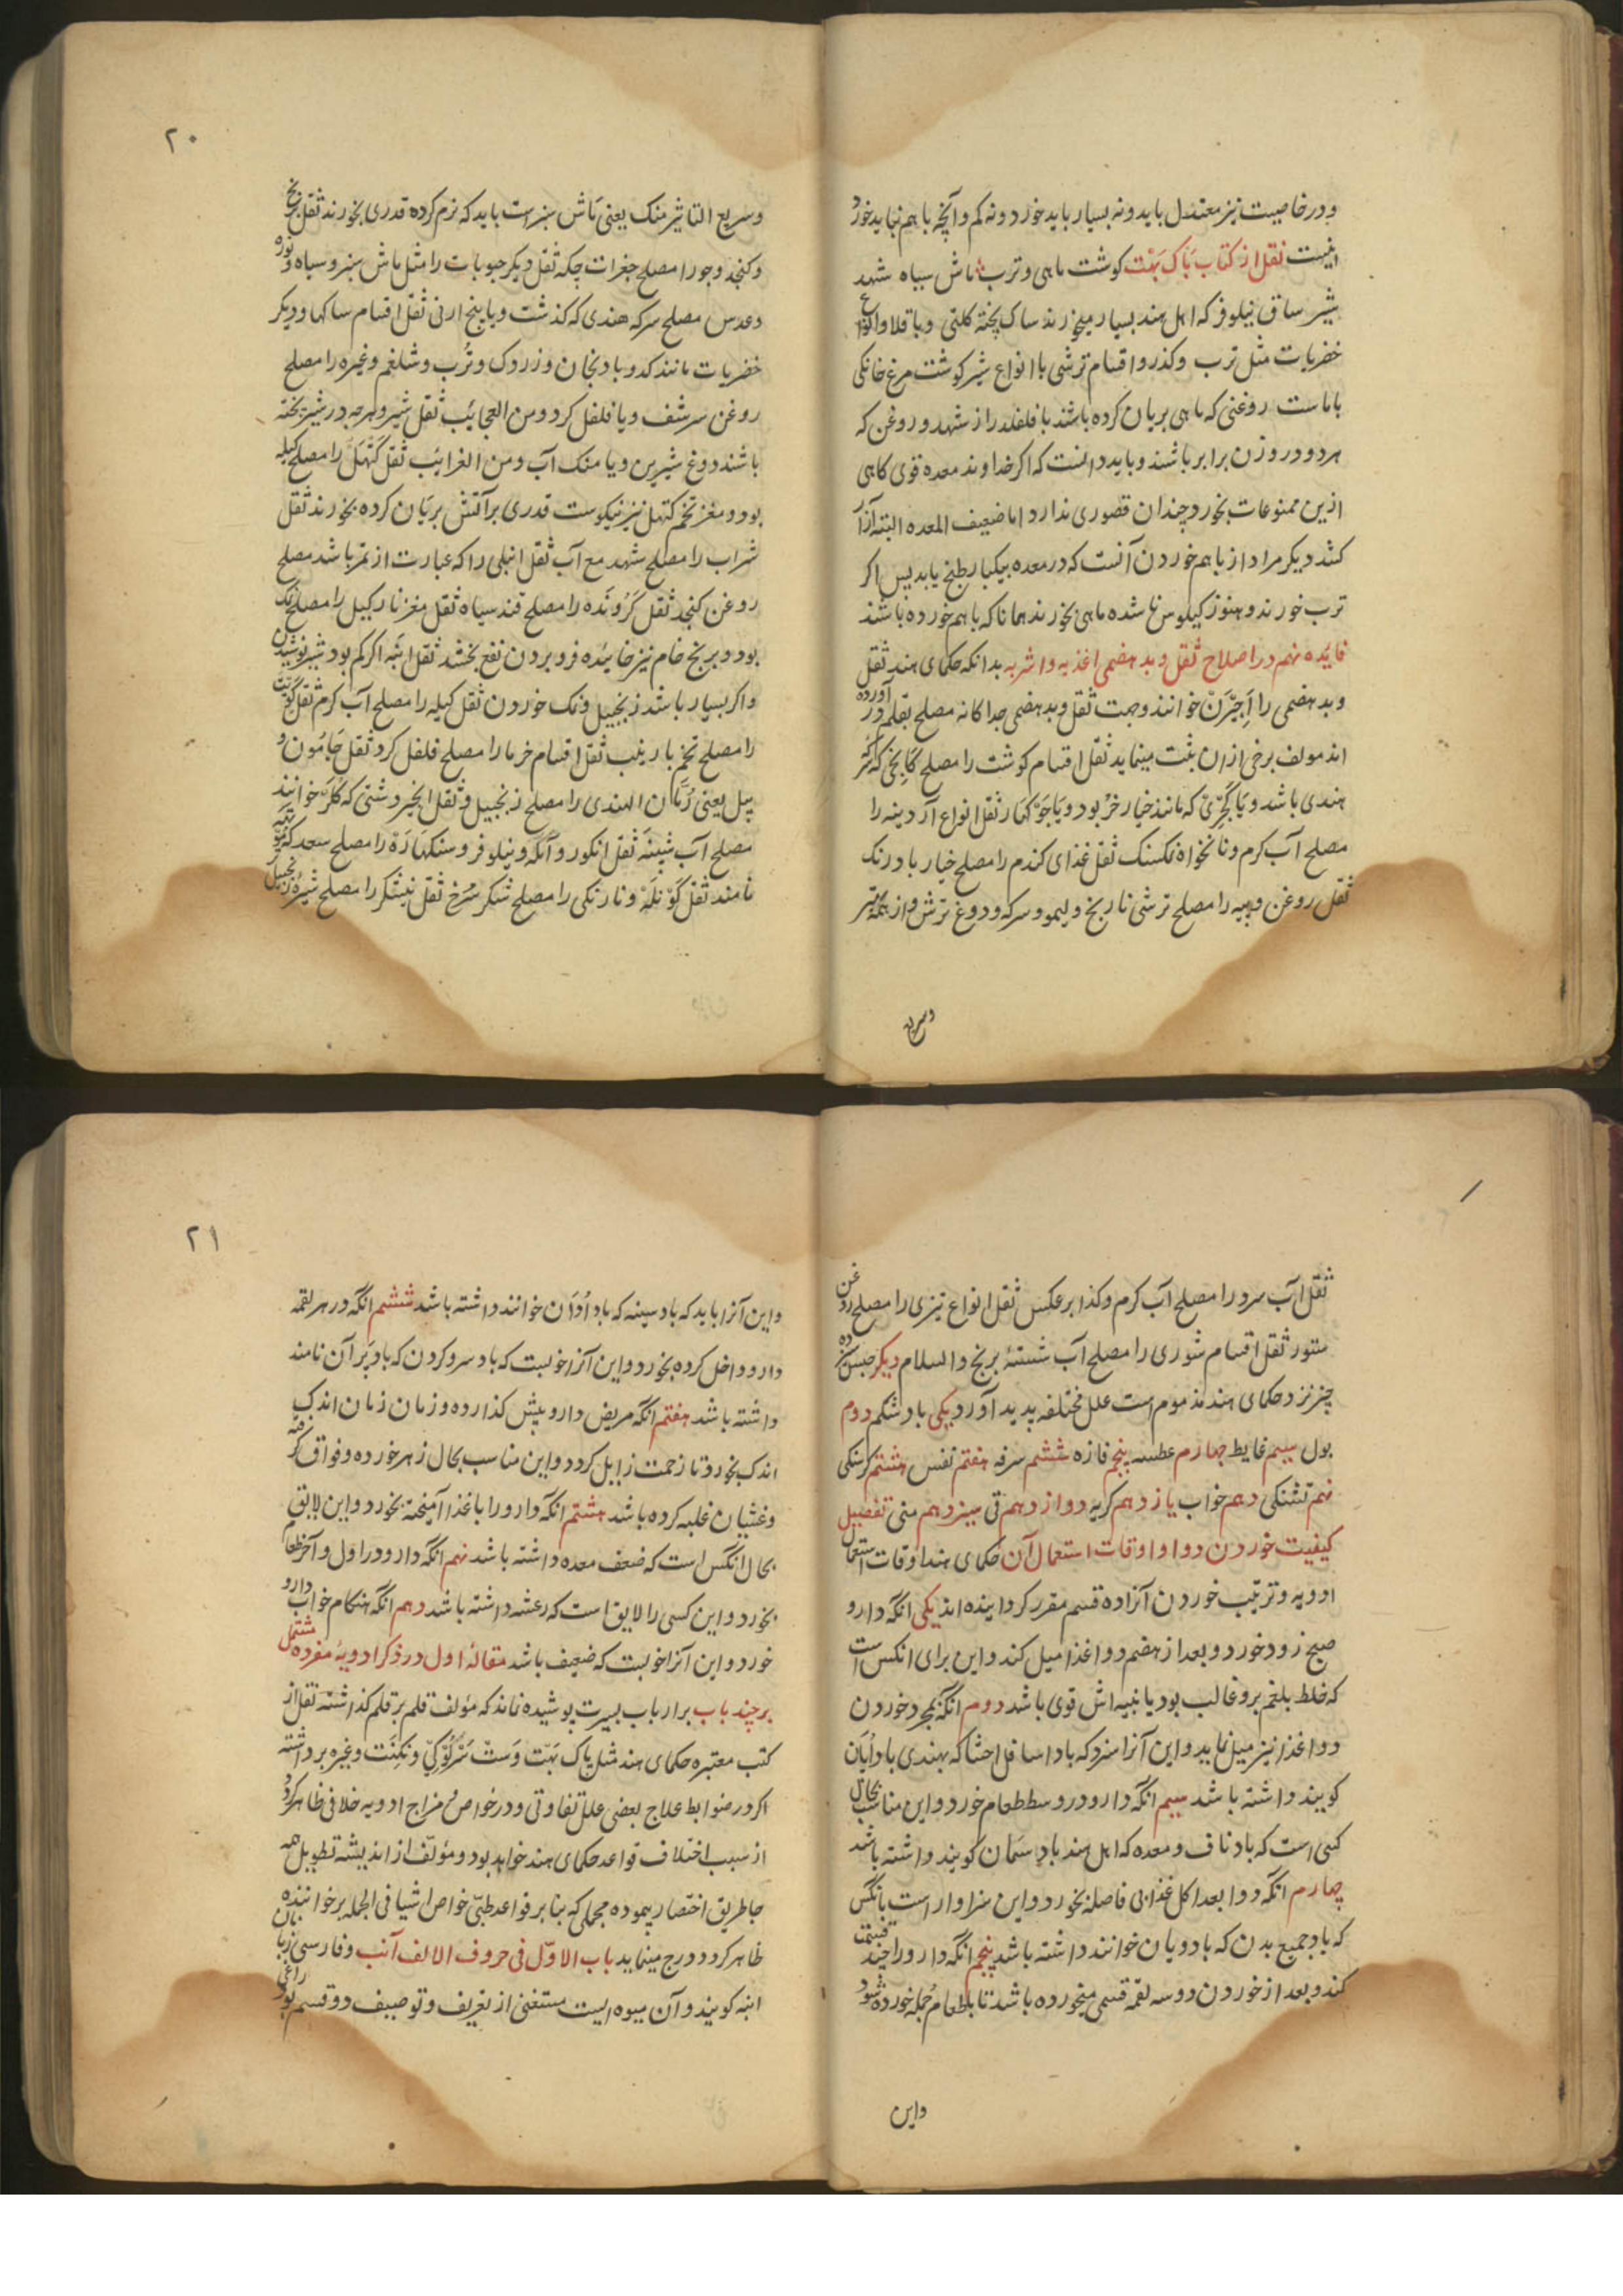 ودر خاصیت نیز معتدل باید و نه بسیار باید خورد و نه کم و آنچه با هم نباید خورد
اینست نقل از کتاب باک بهت کوشت ماهی و ترب ماش سیاه شهد
شیر ساق نیلوفر که اهل هند بسیار میخورند ساک پخته کلتی و باقلا و انواع
خضریات مثل ترب وکذر و اقسام ترشی با انواع شیر کوشت مرغ خانکی
با ماست روغنی که ماهی بریان کرده باشند با فلفلدراز شهد و روغن که
هر دو در وزن برابر باشند و باید دانست که اکر خداوند معده قوی کاهی
ازین ممنوعات بخورد چندان قصوری ندارد اما ضعیف المعده البته آزار
کشد دیکر مراد از با هم خوردن آنست که در معده بیکبار طبخ یابد پس اکر
ترب خورند و هنوز کیلوس نا شده ماهی بخورند همانا که با هم خورده باشند
فایده نهم در اصلاح ثقل و بد هضمی اغذیه و اشربه بدانکه حکمای هند ثقل
و بد هضمی را اجیرن خوانند و جهت ثقل و بد هضمی جدا کانه مصلح بقلم در آورده
اند مولف برخی از ان ثبت مینماید ثقل اقسام کوشت را مصلح کانجی که سرکه
هندی باشد و یا کچری که مانند خیار خرد بود و یا جوکهار ثقل انواع آردینه را
مصلح آب کرم و نانخواه نمکسنک ثقل غذای کندم را مصلح خیار بادرنک
ثقل روغن و پیه را مصلح ترشی نارنج و لیمو و سرکه و دوغ ترش و از همه بهتر
وسریع
۲۰
وسریع التاثیر منک یعنی ماش سبز است باید که نرم کرده قدری بخورند ثقل برنج
و کنجد و جو را مصلح جغرات چکه ثقل دیکر حبوبات را مثل ماش سبز و سیاه و
و عدس مصلح سرکه هندی که کذشت و یا بیخ ارنی ثقل اقسام ساکها و دیکر
خضریات مانند کدو و بادنجان و زردک و ترب و شلغم و غیره را مصلح
روغن سرشف و یا فلفل کرد و من العجائب ثقل شیر و هرچه در شیر پخته
باشند دوغ شیرین و یا منک آب و من الغرائب ثقل کتهل را مصلح کیله
بود و مغز تخم کتهل نیز نیکوست قدری بر آتش بریان کرده بخورند ثقل
شراب را مصلح شهد مع آب ثقل انبلی را که عبارت از تمر باشد مصلح
روغن کنجد ثقل کرونده را مصلح قند سیاه ثقل مغز نارکیل را مصلح نمک
بود و برنج خام نیز خائیده فرو بردن نفع بخشد ثقل انبه اکر کم بود شیر نوشیدن
و اکر بسیار باشد زنجبیل و نمک خوردن ثقل کیله را مصلح آب کرم ثقل
را مصلح تخم بارنب ثقل اقسام خرما را مصلح فلفل کرد ثقل جامون و
بیل یعنی رمان الهندی را مصلح زنجبیل و ثقل انجیر دشتی که کلر خوانند
مصلح آب شبینه ثقل انکور و آمله و نیلوفر و سنکهاره را مصلح سعد که
نامند ثقل کونله و نارنکی را مصلح شکر سرخ ثقل نیشکر را مصلح شیره زنجبیل
ثقل آب سرد را مصلح آب کرم و کذا بر عکس ثقل انواع تیزی را مصلح روغن
ستور ثقل اقسام شوری را مصلح آب شسته برنج والسلام دیکر حبس کردن
چیز نزد حکمای هند مذموم است علل مختلفه پدید آورد یکی باد شکم دوم
بول سیم غایط چهارم عطسه پنجم فازه ششم سرفه هفتم نفس هشتم کرسنکی
نهم تشنکی دهم خواب یازدهم کریه دوازدهم قی سیزدهم منی تفصیل
کیفیت خوردن دوا و اوقات استعمال آن حکمای هند اوقات استعمال
ادویه و ترتیب خوردن آنرا ده قسم مقرر کردانیده اند یکی انکه دارو
صبح زود خورد و بعد از هضم دوا غذا میل کند و این برای انکس است
که خلط بلغم برو غالب بود یا بنیه اش قوی باشد دوم انکه بمجرد خوردن
دوا غذا نیز میل نماید و این آنرا سزد که باد اسافل احشا که بهندی باد اپان
کویند داشته باشد سیم انکه دارو در وسط طعام خورد و این مناسب بحال
کسی است که باد ناف و معده که اهل هند باد سمان کویند داشته باشد
چهارم انکه دوا بعد اکل غذا بی فاصله بخورد و این سزاوار است بانکس
که باد جمیع بدن که باد ویان خوانند داشته باشد پنجم انکه دارو را چند قسمت
کند و بعد از خوردن دو سه لقمه قسمی میخورده باشد تا با طعام جمله خورده شود
واین
۲۱
و این آنرا باید که باد سینه که باد اودان خوانند داشته باشد ششم انکه در هر لقمه
دارو داخل کرده بخورد و این آنرا خوبست که باد سر و کردن که باد پران نامند
داشته باشد هفتم انکه مریض دارو پیش کذارده و زمان زمان اندک
اندک بخورد تا زحمت زایل کردد و این مناسب بحال زهر خورده و فواق کرفته
و غشیان غلبه کرده باشد هشتم انکه دارو را با غذا آمیخته بخورد و این لایق
بحال انکس است که ضعف معده داشته باشد نهم انکه دارو در اول و آخر طعام
بخورد و این کسی را لایق است که رعشه داشته باشد دهم انکه هنکام خواب دارو
خورد و این آنرا خوبست که ضعیف باشد مقاله اول در ذکر ادویه مفرده مشتمل
بر چند باب بر ارباب بصیرت پوشیده نماند که مؤلف قلم بر قلم کذاشته نقل از
کتب معتبره حکمای هند مثل باک بهت و سرت و غیره برداشته
اکر در ضوابط علاج بعضی علل تفاوتی و در خواص و مزاج ادویه خلافی ظاهر کردد
از سبب اختلاف قواعد حکمای هند خواهد بود و مؤلف از اندیشه تطویل همه
جا طریق اختصار پیموده مجملی که بنا بر قواعد طبی خواص اشیا فی الجمله بر خواننده
ظاهر کردد درج مینماید باب الاول فی حروف الالف آنب و فارسی زبانان
انبه کویند و آن میوه ایست مستغنی از تعریف و توصیف دو قسم بود